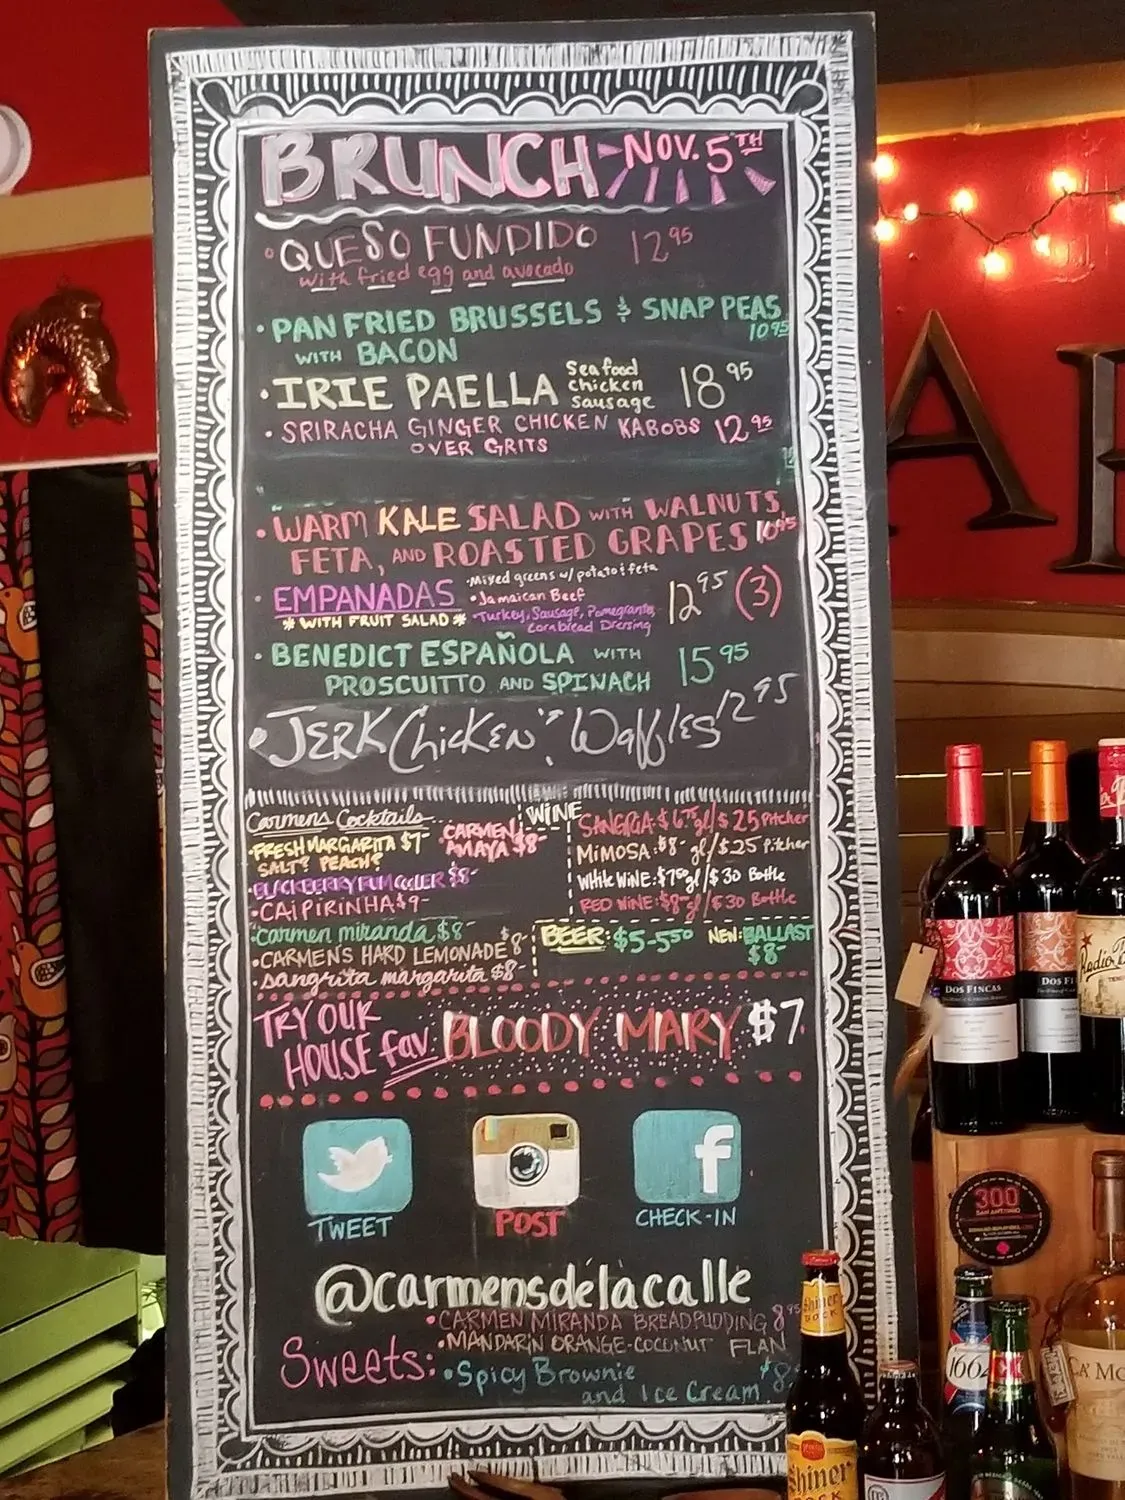 BRUNCH NOV. 5TH
• QUESO FUNDIDO 12 95
with fried egg and avocado
• PAN FRIED BRUSSELS & SNAP PEAS
WITH BACON 10 95
• IRIE PAELLA Seafood chicken sausage 18 95
• SRIRACHA GINGER CHICKEN KABOBS 12 95
OVER GRITS
• WARM KALE SALAD WITH WALNUTS,
FETA, AND ROASTED GRAPES 10 95
• EMPANADAS 12 95 (3)
* WITH FRUIT SALAD *
• Mixed greens w/ potato & feta
• Jamaican Beef
• Turkey, Sausage, Pomegranate,
Cornbread Dressing
• BENEDICT ESPAÑOLA WITH
PROSCUITTO AND SPINACH 15 95
• JERK Chicken & Waffles 12 95
Carmens Cocktails
• FRESH MARGARITA $7-
SALT? PEACH?
CARMEN
AMAYA $8-
• BLACKBERRY RUM COOLER $8-
• CAIPIRINHA $9-
• Carmen miranda $8-
• CARMEN'S HARD LEMONADE $8-
• sangrita margarita $8-
WINE
SANGRIA: $6.75 gl/$25 Pitcher
MIMOSA: $8- gl/$25 Pitcher
WHITE WINE: $7.50 gl/$30 Bottle
RED WINE: $8- gl/$30 Bottle
BEER: $5-5.50 NEW: BALLAST
$8-
TRY OUR
HOUSE fav. BLOODY MARY $7.
TWEET
POST
f
CHECK-IN
@carmensdelacalle
Sweets:
• CARMEN MIRANDA BREADPUDDING 8 95
• MANDARIN ORANGE-COCONUT FLAN
• Spicy Brownie
and Ice Cream $8
DOS FINCAS
DOS FI
Radio
300
SAN ANTONIO
Shiner
BOCK
1664
CA' MO
Shiner
BOCK